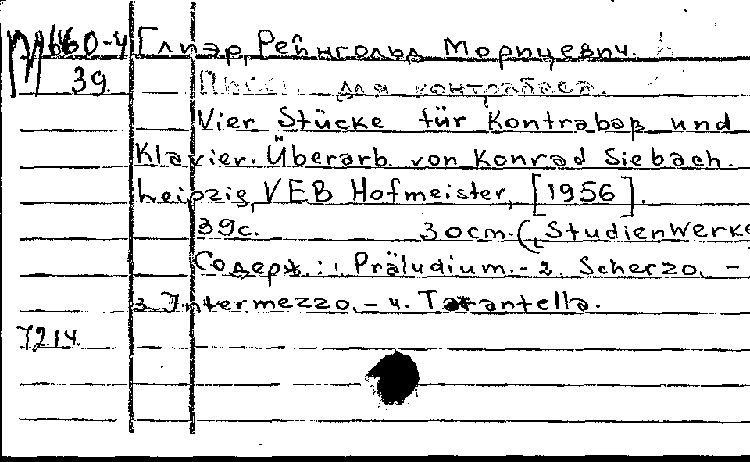 М660-4 Глиэр, Рейнгольд Морицевич.
39 Пьесы для контрабаса.
Vier Stücke für Kontrabaß und
Klavier. Überarb. von Konrad Siebach.
Leipzig, VEB Hofmeister, [1956].
39с. 30cm. (Studienwerke
Содерж.: 1. Präludium. - 2. Scherzo. -
3. Intermezzo. - 4. Tarantella.
7214